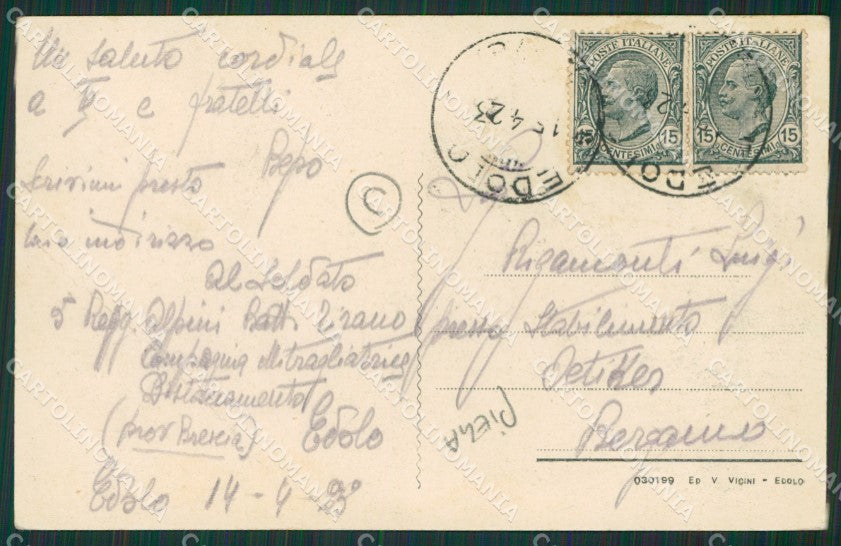 Un saluto cordiale
a e fratelli
Bepo
Scrivimi presto
mio indirizzo
Al Soldato
5 Regg. Alpini Batt. Tirano
Compagnia Mitragliatrice
Distaccamento
(prov Brescia) Edolo
Edolo 14-4-23
C
POSTE ITALIANE
15 15
CENTESIMI
POSTE ITALIANE
15 15
CENTESIMI
EDOLO
15.4.23
EDOLO
Rigamonti Luigi
presso Stabilimento
Bergamo
PIEGA
030199 ED V. VIGINI - EDOLO
CARTOLINOMANIA